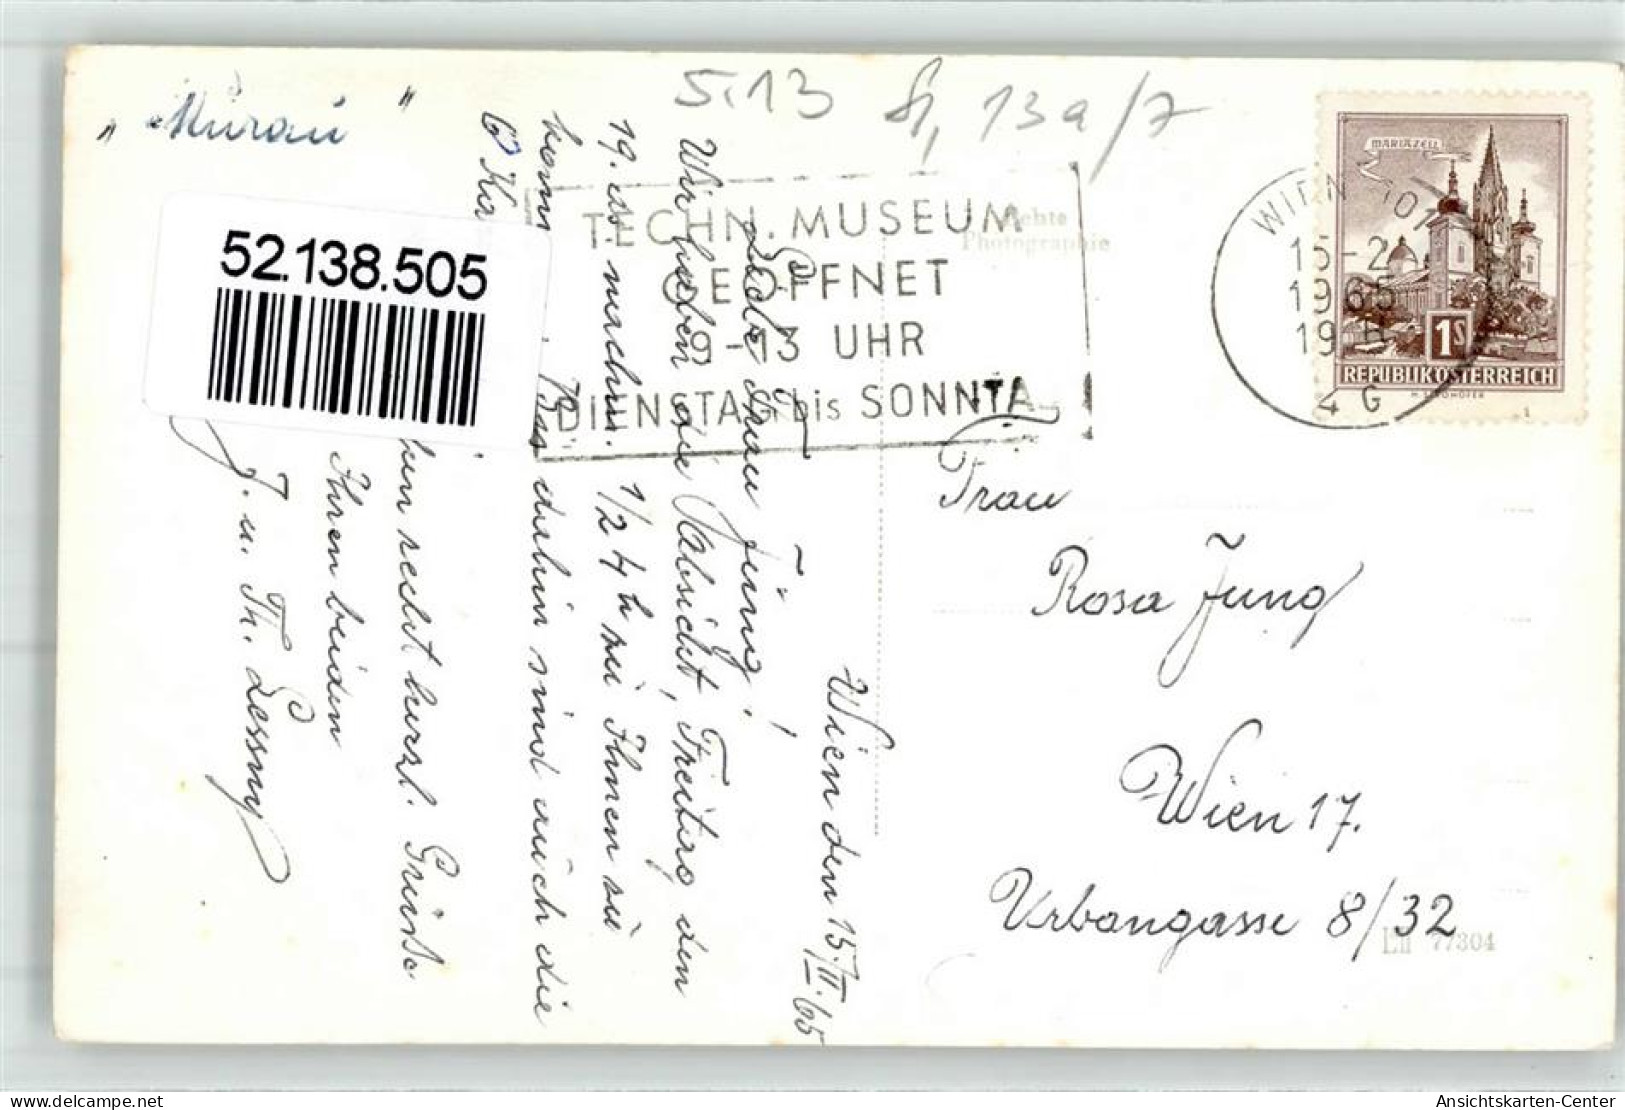 „ Murau "
5.13
13a/7
52.138.505
TECHN. MUSEUM
GEÖFFNET
9-13 UHR
DIENSTAG bis SONNTA
Echte
Photographie
WIEN 101
15-2
1965
19
4 G
MARIAZELL
1S
REPUBLIK ÖSTERREICH
Wien den 15./II. 65
Liebe Frau Jung!
Wir haben die Absicht, Freitag den
19. ds. nachm. 1/2 4 h zu Ihnen zu
komm Bis dahin sind auch die
recht herzl. Grüsse
Ihren beiden
J. u. Th. Lessny
Frau
Rosa Jung
Wien 17.
Urbangasse 8/32
77304
www.delcampe.net
akpool-com
Ansichtskarten-Center